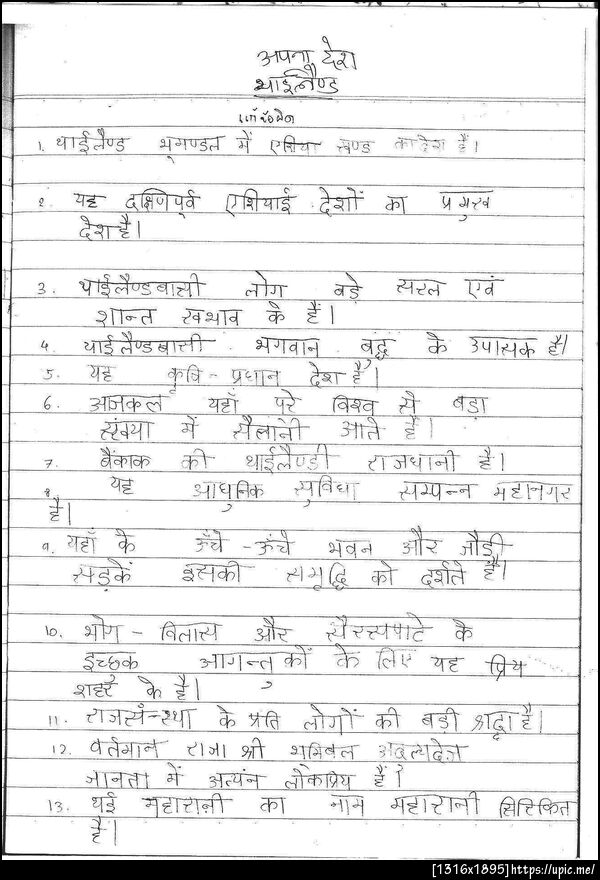 अपना देश
थाईलैण्ड
1. थाईलैण्ड भूमण्डल में एशिया खण्ड का देश हैं।
2. यह दक्षिणपूर्व एशियाई देशों का प्रमुख
देश है।
3. थाईलैण्डबासी लोग बड़े सरल एवं
शान्त स्वभाव के हैं।
4. थाईलैण्डबासी भगवान बुद्ध के उपासक हैं।
5. यह कृषि-प्रधान देश है।
6. आजकल यहाँ पर विश्व से बड़ा
संख्या में सैलानी आते हैं।
7. बैंकाक की थाईलैण्डी राजधानी है।
8. यह आधुनिक सुविधा सम्पन्न महानगर
है।
9. यहाँ के ऊँचे-ऊँचे भवन और जौड़ी
सड़कें इसकी समृद्धि को दर्शते हैं।
10. भोग-विलास और सैरसपाटे के
इच्छुक आगन्तुकों के लिए यह प्रिय
शहर के है।
11. राजसंस्था के प्रति लोगों की बड़ी श्रद्धा है।
12. वर्तमान राजा श्री भूमिबल
जानता में अत्यंन लोकप्रिय हैं।
13. थई महारानी का नाम महारानी सिरिकित
है।
[1316x1895]https://upic.me/